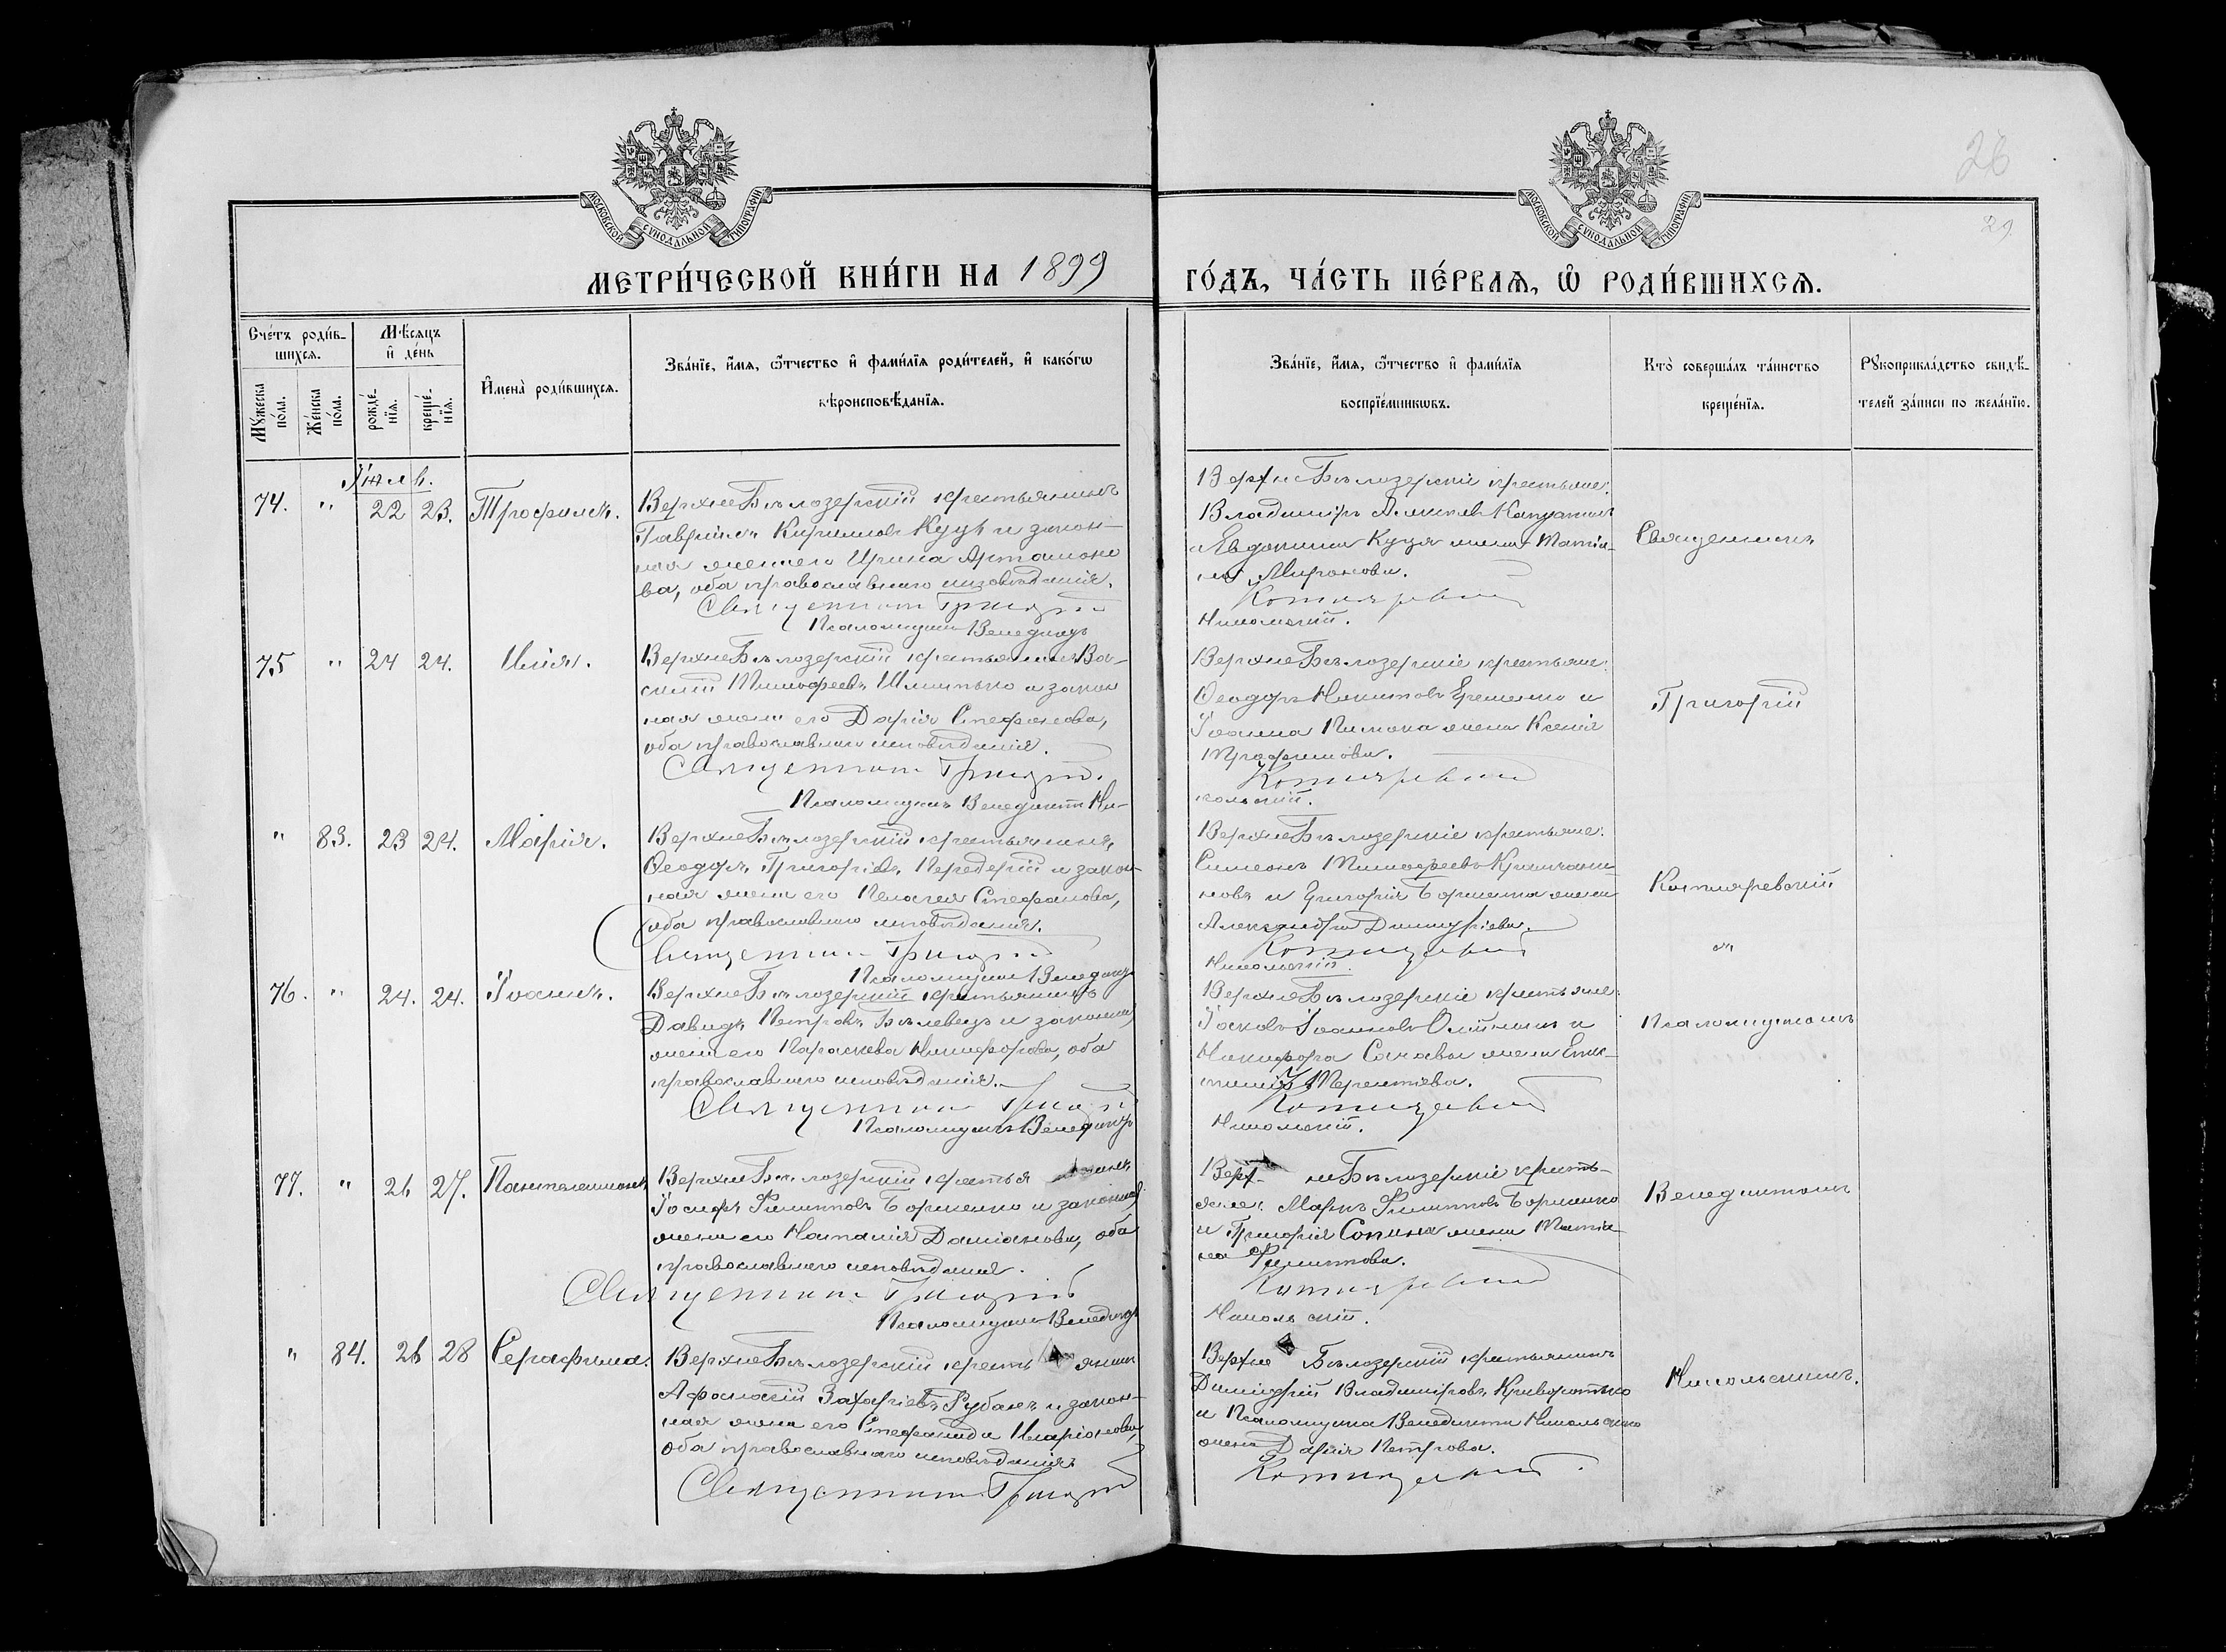 МОСКОВСКОЙ СУНОДАЛЬНОЙ ТИПОГРАФІИ
МОСКОВСКОЙ СУНОДАЛЬНОЙ ТИПОГРАФІИ
26
29.
МЕТРИ́ЧЕСКОЙ КНИ́ГИ НА 1899
ГО́ДЪ, ЧА́СТЬ ПЕ́РВАѦ, Ѡ РОДИ́ВШИХСѦ.
Сче́тъ роди́в-
шихсѧ.
Мꙋ́жеска по́ла.
Же́нска по́ла.
Мѣ́сяцъ
и де́нь
рожде́-
нїѧ.
креще́-
нїѧ.
Имена̀ роди́вшихсѧ.
Зва́нїе, и́мѧ, ѻ҆́тчество и҆ фами́лїѧ роди́телей, и҆ како́гѡ
вѣроисповѣ́данїѧ.
Зва́нїе, и́мѧ, ѻ҆́тчество и҆ фами́лїѧ
воспрїе́мникѡвъ.
Кто̀ соверша́лъ та́инство
креще́нїѧ.
Рꙋкоприкла́дство свидѣ́-
телей за́писи по жела́нїю.
Іюль.
74. " 22 23. Трофимъ.
ВерхнеБѣлозерскій крестьянинъ
Гавріилъ Кирилловъ Куцъ и закон-
ная жена его Ирина Артамоно
ва, оба православнаго исповѣданія.
Священникъ Григорій
Псаломщикъ Венедиктъ
ВерхнеБѣлозерскіе крестьяне:
Владиміръ
и Евдокима Куця жена Татія-
на Миронова.
Котляревскій
Никольскій.
Священникъ
75 " 24 24. Илія.
ВерхнеБѣлозерскій крестьянинъ Ва-
силій Тимофеевъ и закон
ная жена его Дарія Стефанова,
оба православнаго исповѣданія.
Священникъ Григорій.
Псаломщикъ Венедиктъ Ни-
ВерхнеБѣлозерскіе крестьяне:
Ѳеодоръ Никитовъ Еременко и
Іоанна жена Ксенія
Трофимова.
Котляревскій
кольскій.
Григорій
" 83. 23 24. Марія.
ВерхнеБѣлозерскій крестьянинъ
Ѳеодоръ Григоріевъ Передерій и закон-
ная жена его Пелагея Стефанова,
оба православнаго исповѣданія.
Священникъ Григорій
Псаломщикъ Венедиктъ
ВерхнеБѣлозерскіе крестьяне:
Симеонъ Тимофеевъ
и Григорія Борщенка жена
Александра Димитріева.
Котляревскій
Никольскій.
Котляревскій
съ
76. " 24. 24. Іоаннъ.
ВерхнеБѣлозерскій крестьянинъ
Давидъ Петровъ Бѣлевецъ и законная
жена его Параскева Никифорова, оба
православнаго исповѣданія.
Священникъ Григорій
Псаломщикъ Венедиктъ
ВерхнеБѣлозерскіе крестьяне:
Іаковъ Іоанновъ Олійникъ и
Никифора Сачавы жена
Терентіева.
Котляревскій
Никольскій.
Псаломщикомъ
77. " 26 27. Пантелеимонъ
ВерхнеБѣлозерскій крестьянинъ
Іосифъ Филипповъ Борщенко и законная
жена его Наталія Даміанова, оба
православнаго исповѣданія.
Священникъ Григорій
Псаломщикъ Венедиктъ
ВерхнеБѣлозерскіе кресть-
яне: Маркъ Филипповъ Борщенко
и Григорія Сопина жена Татіа-
на Филиппова.
Котляревскій
Никольскій.
Венедиктомъ
" 84. 26 28 Серафима.
ВерхнеБѣлозерскій крестьянинъ
Афанасій Захаріевъ Рубанъ и закон-
ная жена его Стефанида Иларіонова,
оба православнаго исповѣданія.
Священникъ Григорій
Верхне Бѣлозерскій крестьянинъ
Димитрій Владиміровъ Криворотько
и Псаломщика Венедикта Никольскаго
жена Дарія Петрова.
Котляревскій.
Никольскимъ.